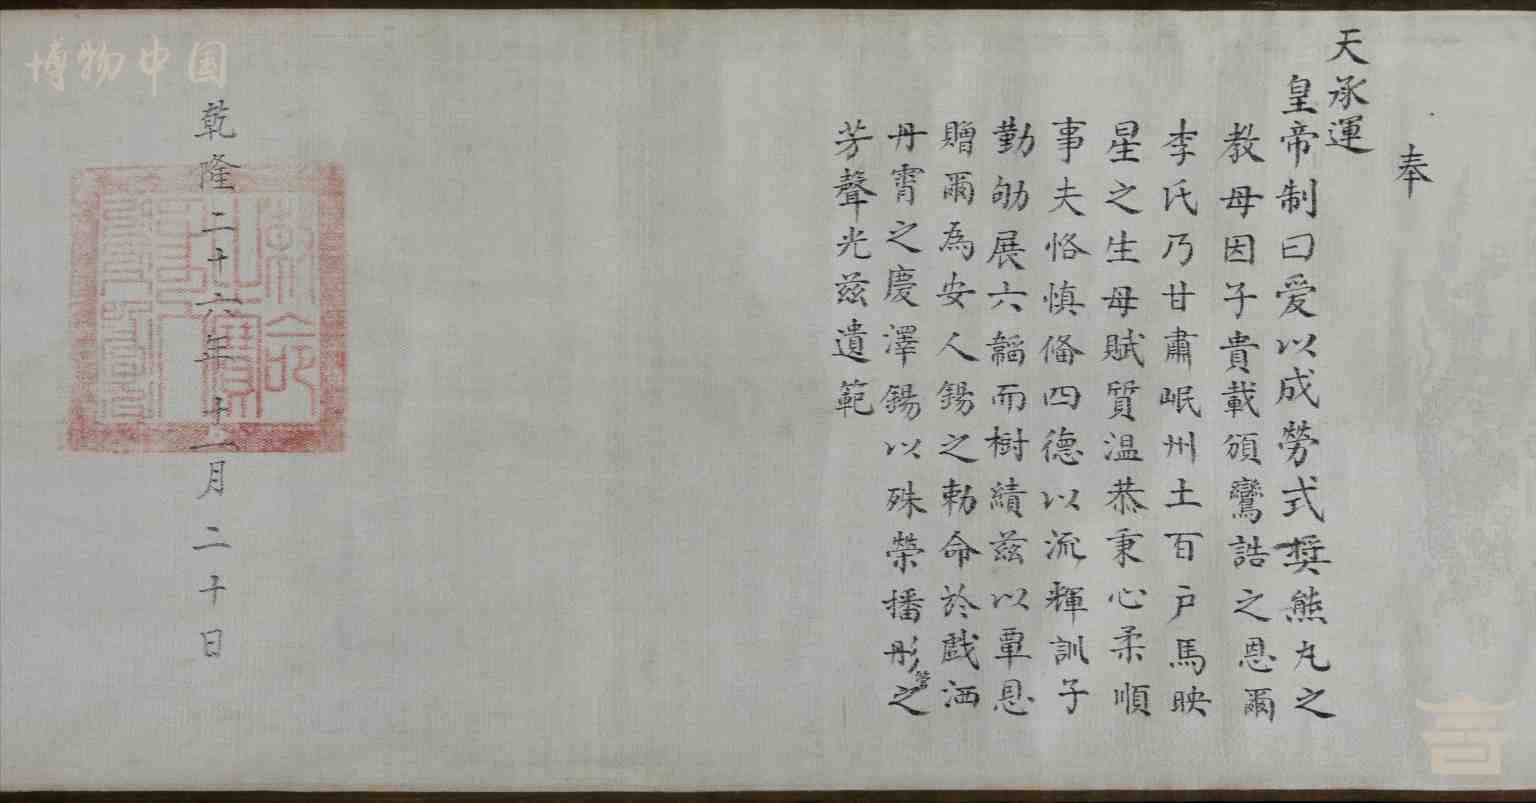 奉
天承運
皇帝制曰爰以成勞式獎熊丸之
教母因子貴載頒鸞誥之恩爾
李氏乃甘肅岷州土百戶馬映
星之生母賦質温恭秉心柔順
事夫恪慎俻四德以流輝訓子
勤劬展六韜而樹績茲以覃恩
贈爾為安人錫之勅命於戲洒
丹霄之慶澤錫以殊榮播彤管之
芳聲光茲遺範
制誥之寳
乾隆二十六年十一月二十日
博物中国